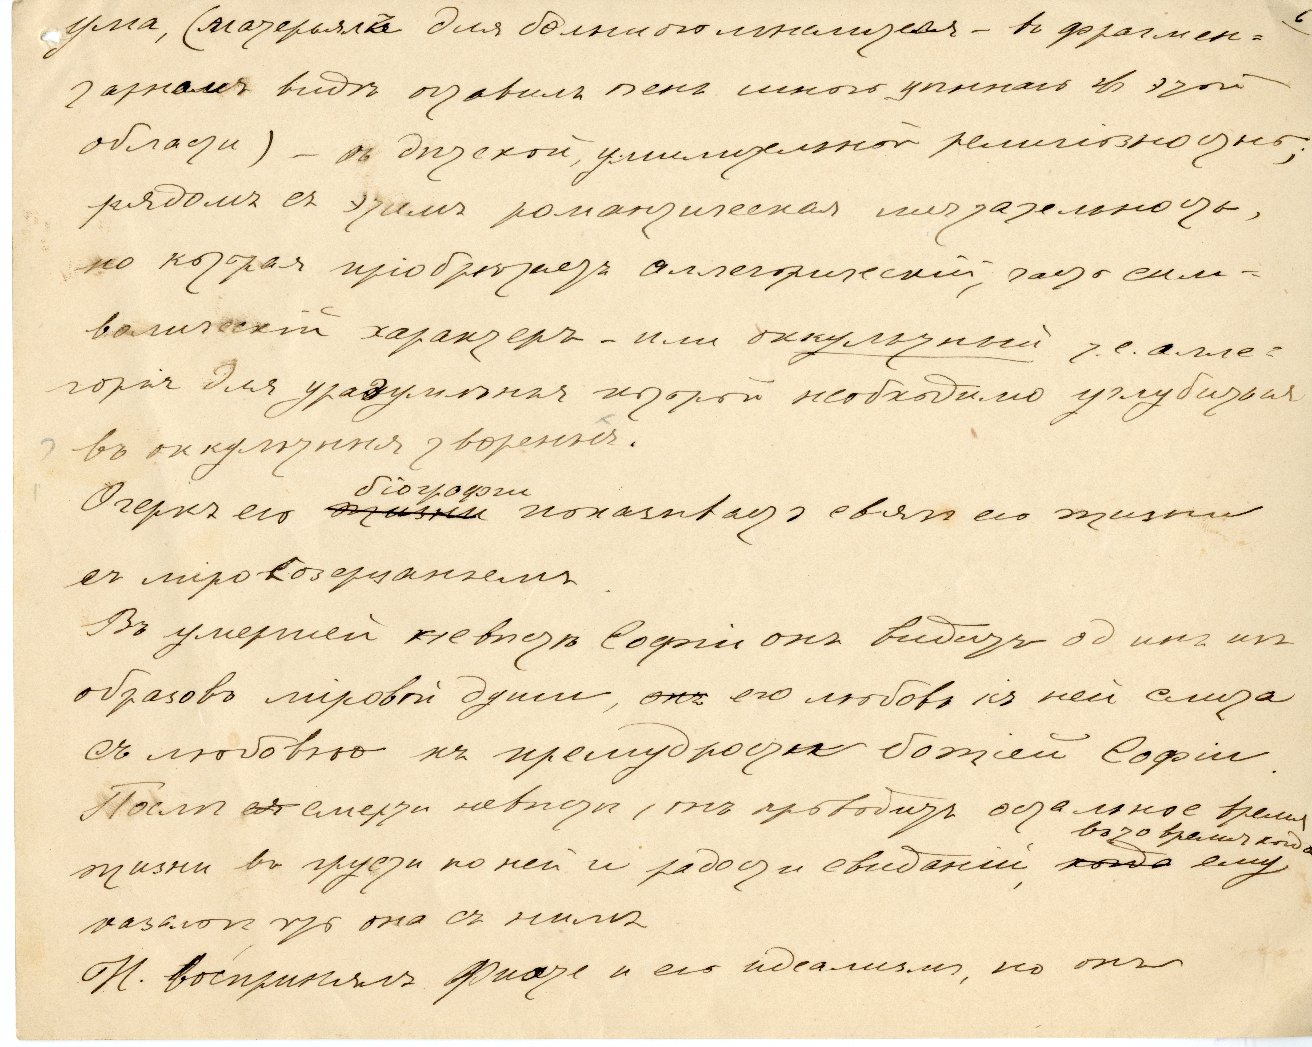 ума, (матерьялъ для большого мыслителя – въ фрагмен=
тарномъ видѣ оставилъ очень много цѣннаго въ этой
области) – съ дѣтской, умилительной религіозностью;
рядомъ съ этимъ романтическая мечтательность,
но которая пріобрѣтаетъ аллегорическій, часто сим=
волическій характеръ – или оккультный т.е. алле=
горія для уразумѣнья которой необходимо углубиться
въ оккультныя творенья.
Очеркъ его жизни біографіи показываетъ связь его жизни
съ міровозерцаньемъ
Въ умершей невѣстѣ Софіи онъ видитъ одинъ изъ
образовъ міровой души, онъ его любовь къ ней слита
съ любовью къ премудрости божіей Софіи.
Послѣ ея смерти невѣсты, онъ проводитъ остальное время
во то время когда
жизни въ грусти по ней и радости свиданій, когда ему
казалось что она съ нимъ
Н. воспринялъ Фихте и его идеализмъ, но онъ